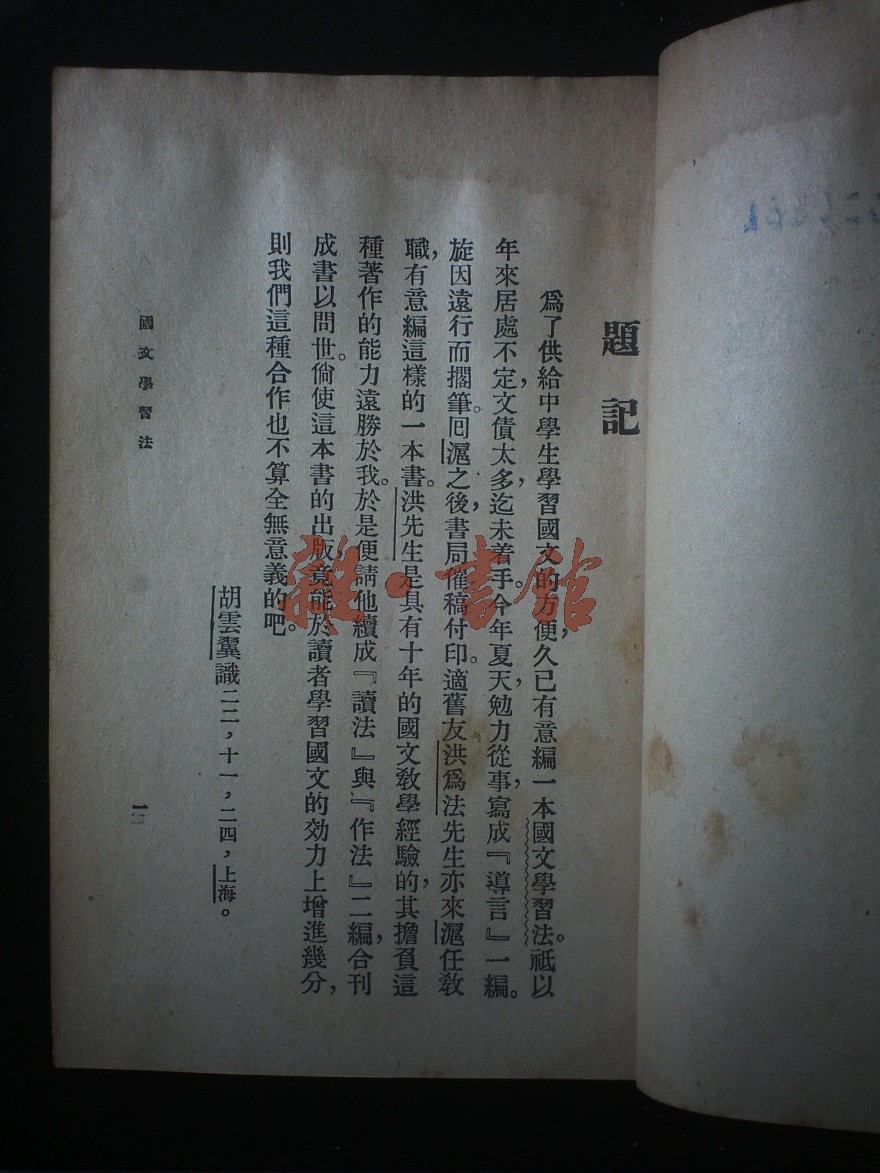 題記
爲了供給中學生學習國文的方便，久已有意編一本國文學習法。祗以
年來居處不定，文債太多，迄未着手。今年夏天，勉力從事，寫成『導言』一編。
旋因遠行而擱筆。回滬之後，書局催稿付印。適舊友洪爲法先生亦來滬任敎
職，有意編這樣的一本書。洪先生是具有十年的國文敎學經驗的，其擔負這
種著作的能力遠勝於我。於是便請他續成『讀法』與『作法』二編，合刊
成書以問世。倘使這本書的出版，竟能於讀者學習國文的効力上增進幾分，
則我們這種合作也不算全無意義的吧。
胡雲翼識二二，十一，二四，上海。
國文學習法
一
雜·書館